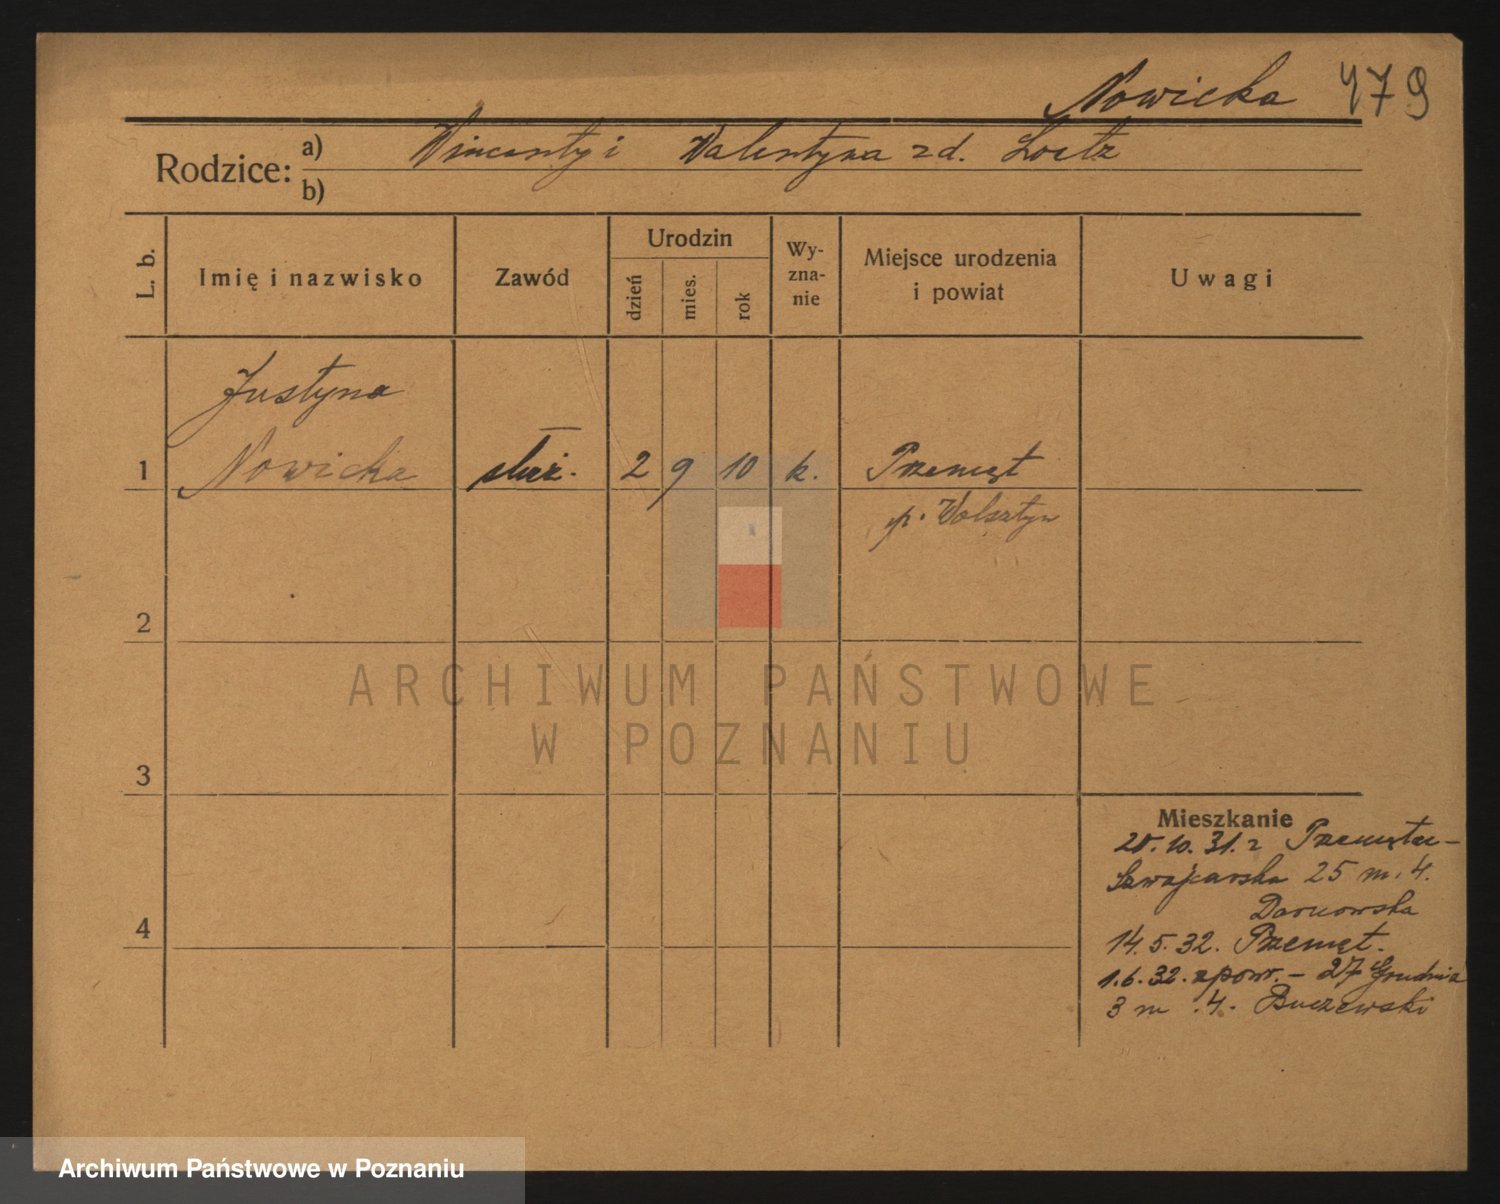 Nowicka 479
Rodzice: a) Wincenty i Valentyna zd. Loetz
b)
L. b. Imię i nazwisko Zawód Urodzin dzień mies. rok Wy-zna-nie Miejsce urodzenia i powiat Uwagi
Justyna
1 Nowicka służ. 2 9 10 k. Przemęt
p. Wolsztyn
2
3
Mieszkanie
20.10.31. z Przemętu –
Szwajcarska 25 m. 4.
Darnowska
4
14.5.32. Przemęt.
1.6.32. zpow. – 27 Grudnia
3 m. 4. Buczewski
ARCHIWUM PAŃSTWOWE
W POZNANIU
Archiwum Państwowe w Poznaniu